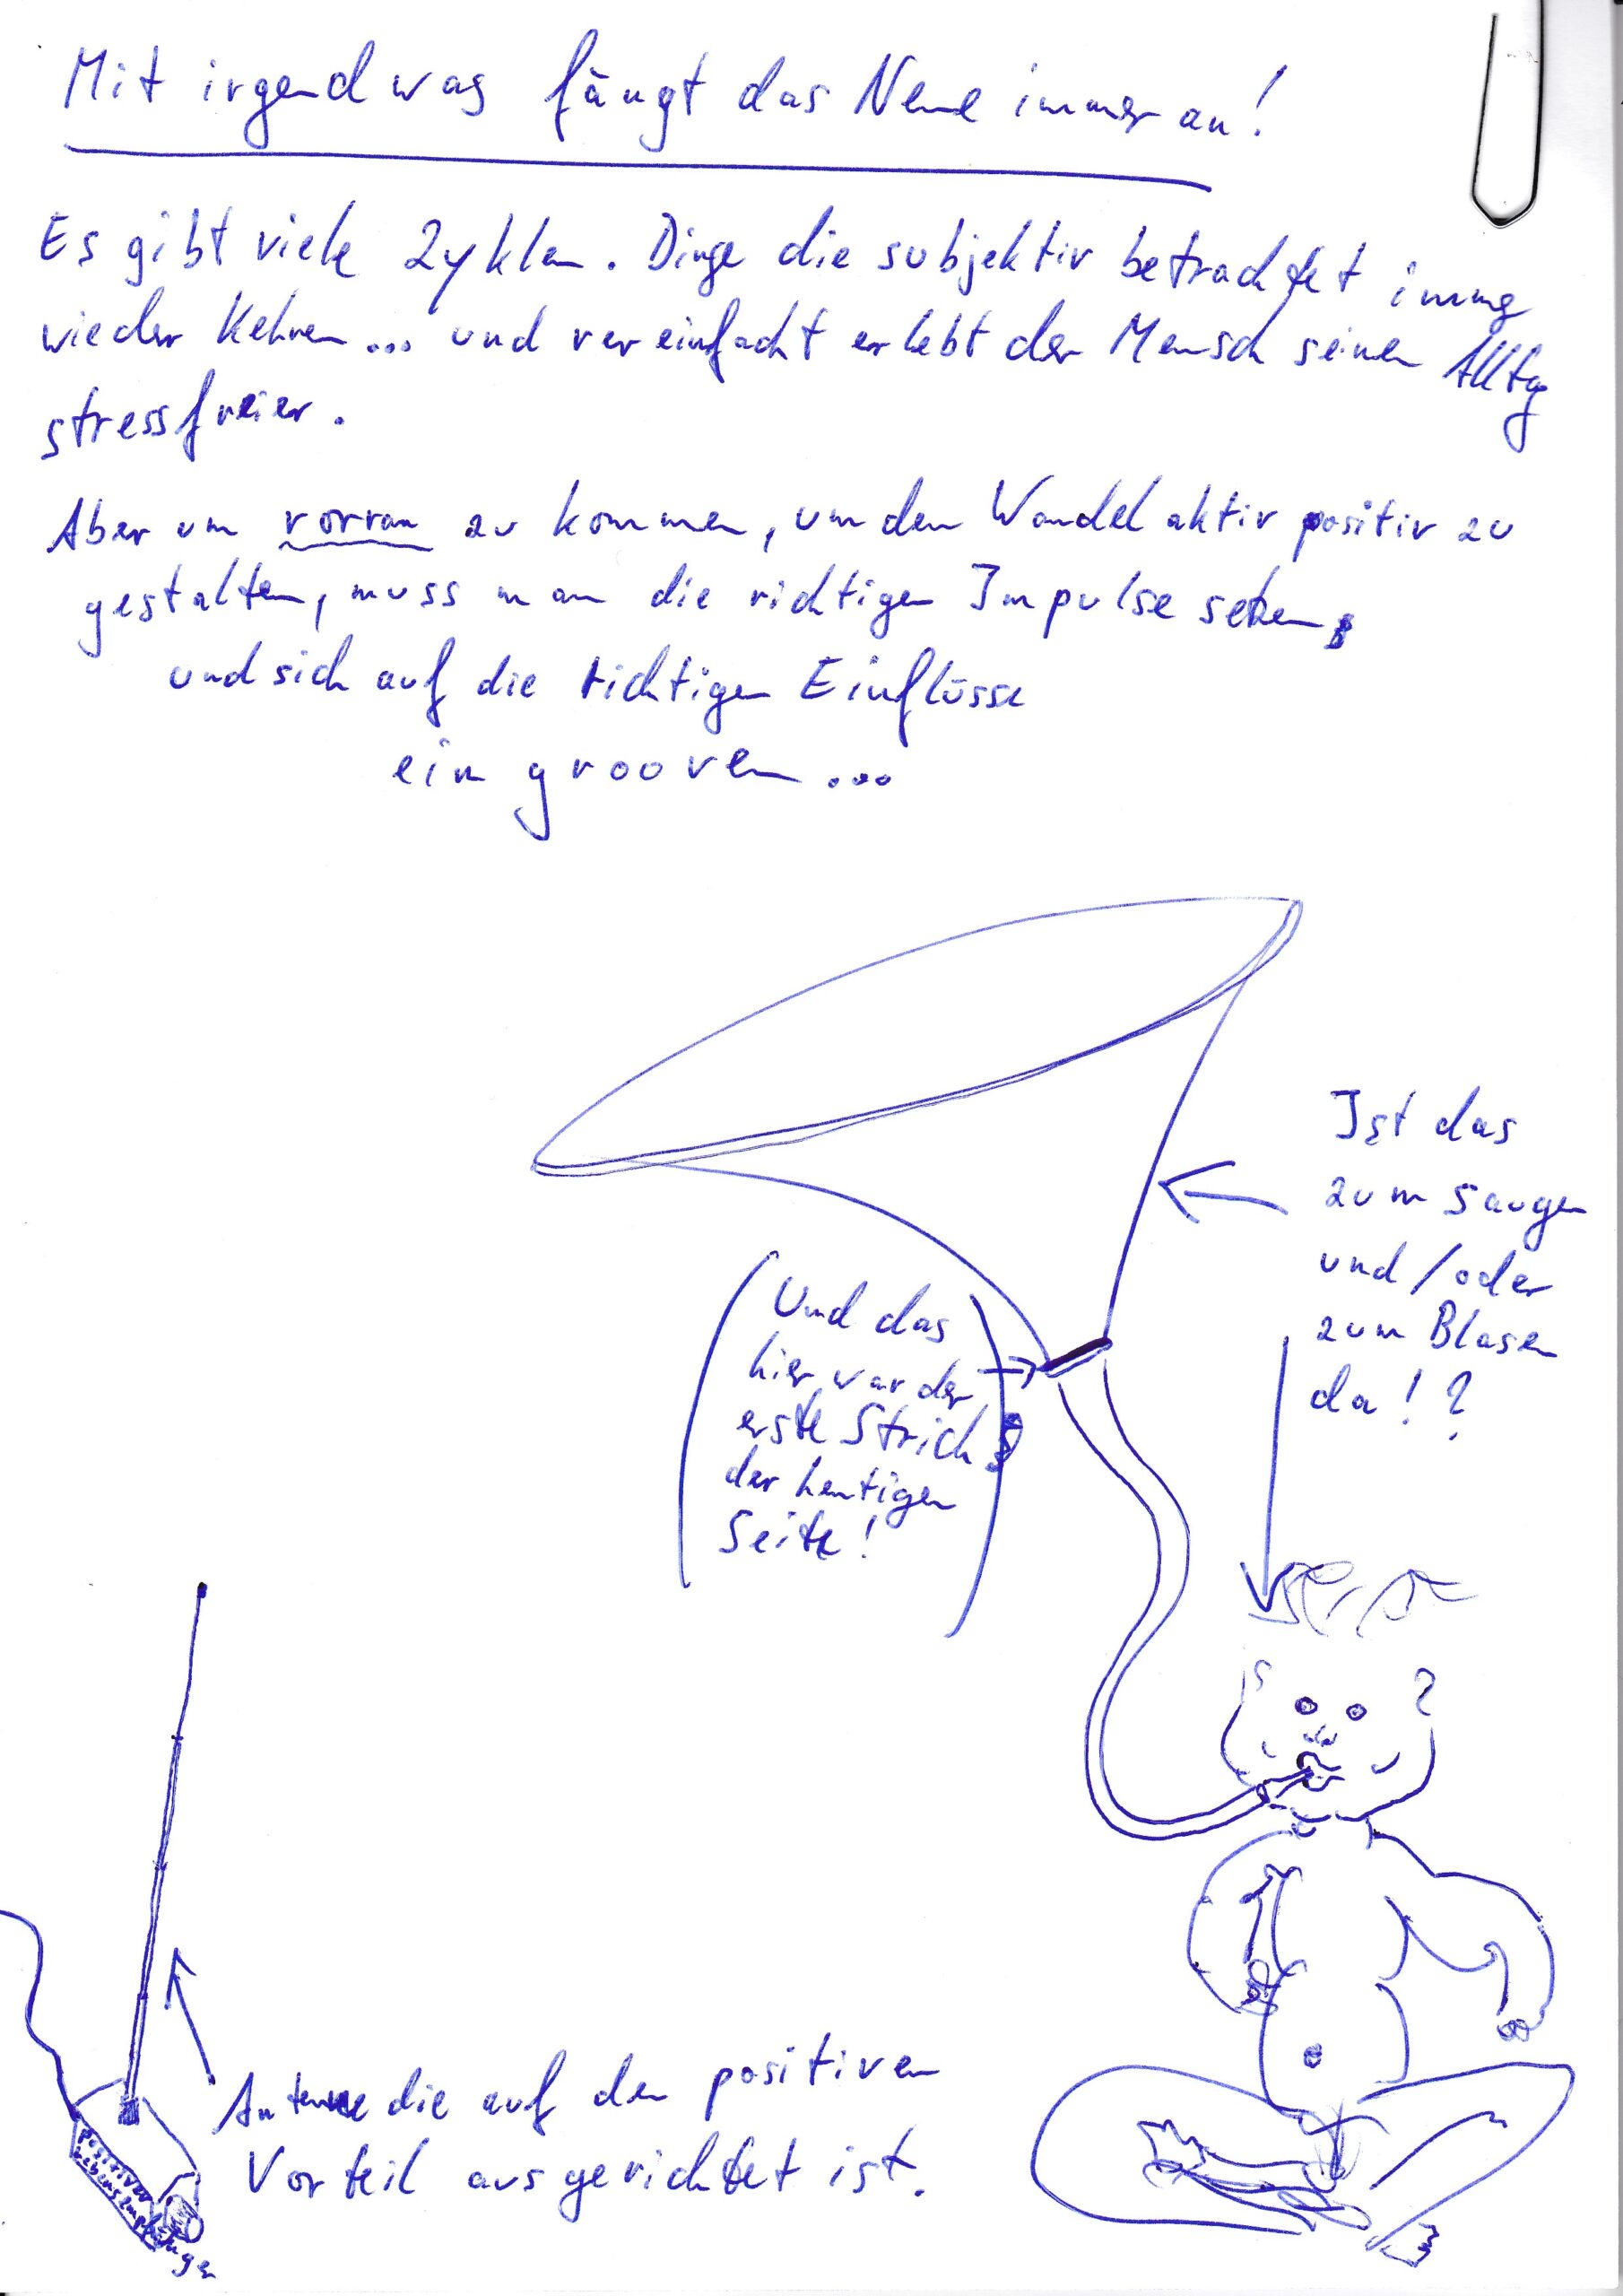 Mit irgendwas fängt das Neue immer an!
Es gibt viele Zyklen. Dinge die subjektiv betrachtet immer
wieder kehren... und vereinfacht erlebt der Mensch seinen Alltag
stressfreier.
Aber um vorran zu kommen, um den Wandel aktiv positiv zu
gestalten, muss man die richtigen Impulse setzen,
und sich auf die richtigen Einflüsse
ein grooven...
Ist das
zum saugen
und/oder
zum Blasen
da!?
(Und das
hier war der
erste Strich
der heutigen
Seite!)
Antenne die auf den positiven
Vorteil ausgerichtet ist.
positiver